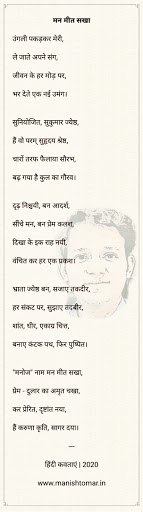 मन मीत सखा
उंगली पकड़कर मेरी,
ले जाते अपने संग,
जीवन के हर मोड़ पर,
भर देते एक नई उमंग।
सुनियोजित, सुकुमार ज्येष्ठ,
हैं वो परम् सुहृदय श्रेष्ठ,
चारों तरफ फैलाया सौरभ,
बढ़ गया है कुल का गौरव।
दृढ़ निश्चयी, बन आदर्श,
सींचे मन, बन प्रेम कलश,
दिखा के इक राह नयी,
वंचित कर हर एक
भ्राता ज्येष्ठ बन, सजाए तकदीर,
हर संकट पर, सुझाए तदबीर,
शांत, धीर, एकाग्र चित्त,
बनाए कंटक पथ, फिर पुष्पित।
"मनोज" नाम मन मीत सखा,
प्रेम - दुलार का अमृत चखा,
कर प्रेरित, दृष्टांत नया,
हैं करुणा कृति, सागर दया।
---
हिंदी कवताएं | 2020
www.manishtomar.in